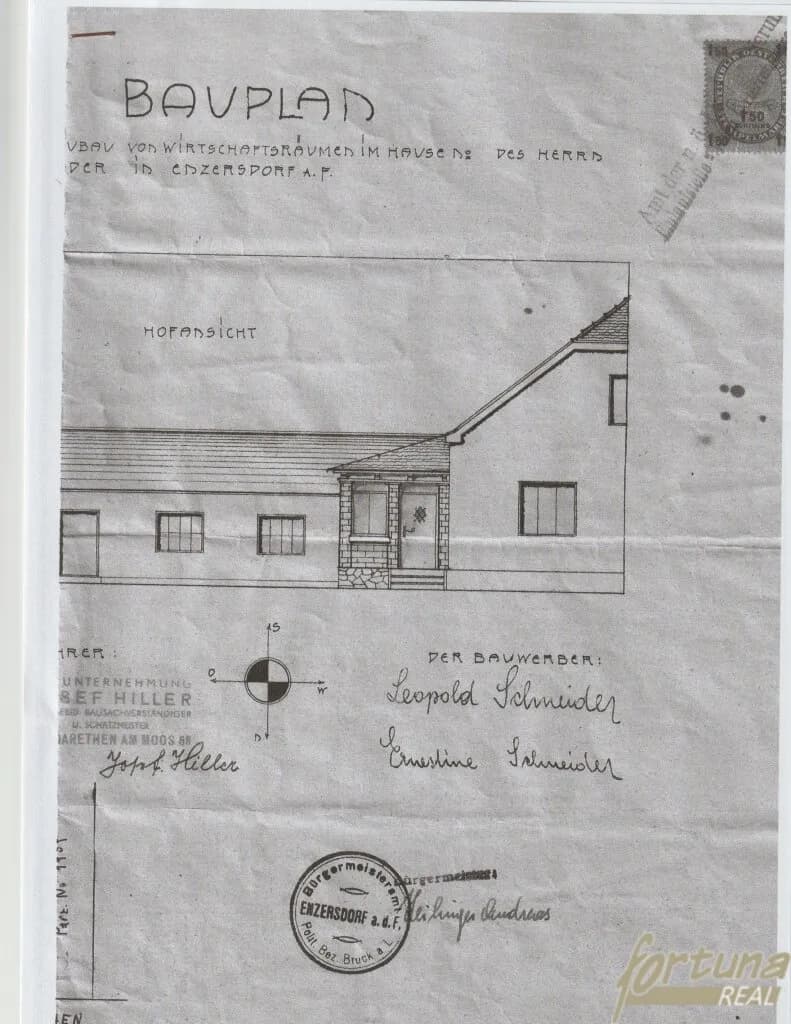 BAUPLAN
UBAU VON WIRTSCHAFTSRÄUMEN IM HAUSE No DES HERRN
DER IN ENZERSDORF A.F.
50
HOFANSICHT
S
O
W
N
HRER:
UNTERNEHMUNG
SEF HILLER
BAUSACHVERSTÄNDIGER
U. SCHATZMEISTER
ARETHEN AM MOOS 88
Josef Hiller
DER BAUWERBER:
Leopold Schneider
Ernestine Schneider
Bürgermeisteramt
ENZERSDORF a.d.F.
Polit. Bez. Bruck a. L.
Bürgermeister
Andreas
fortuna
REAL